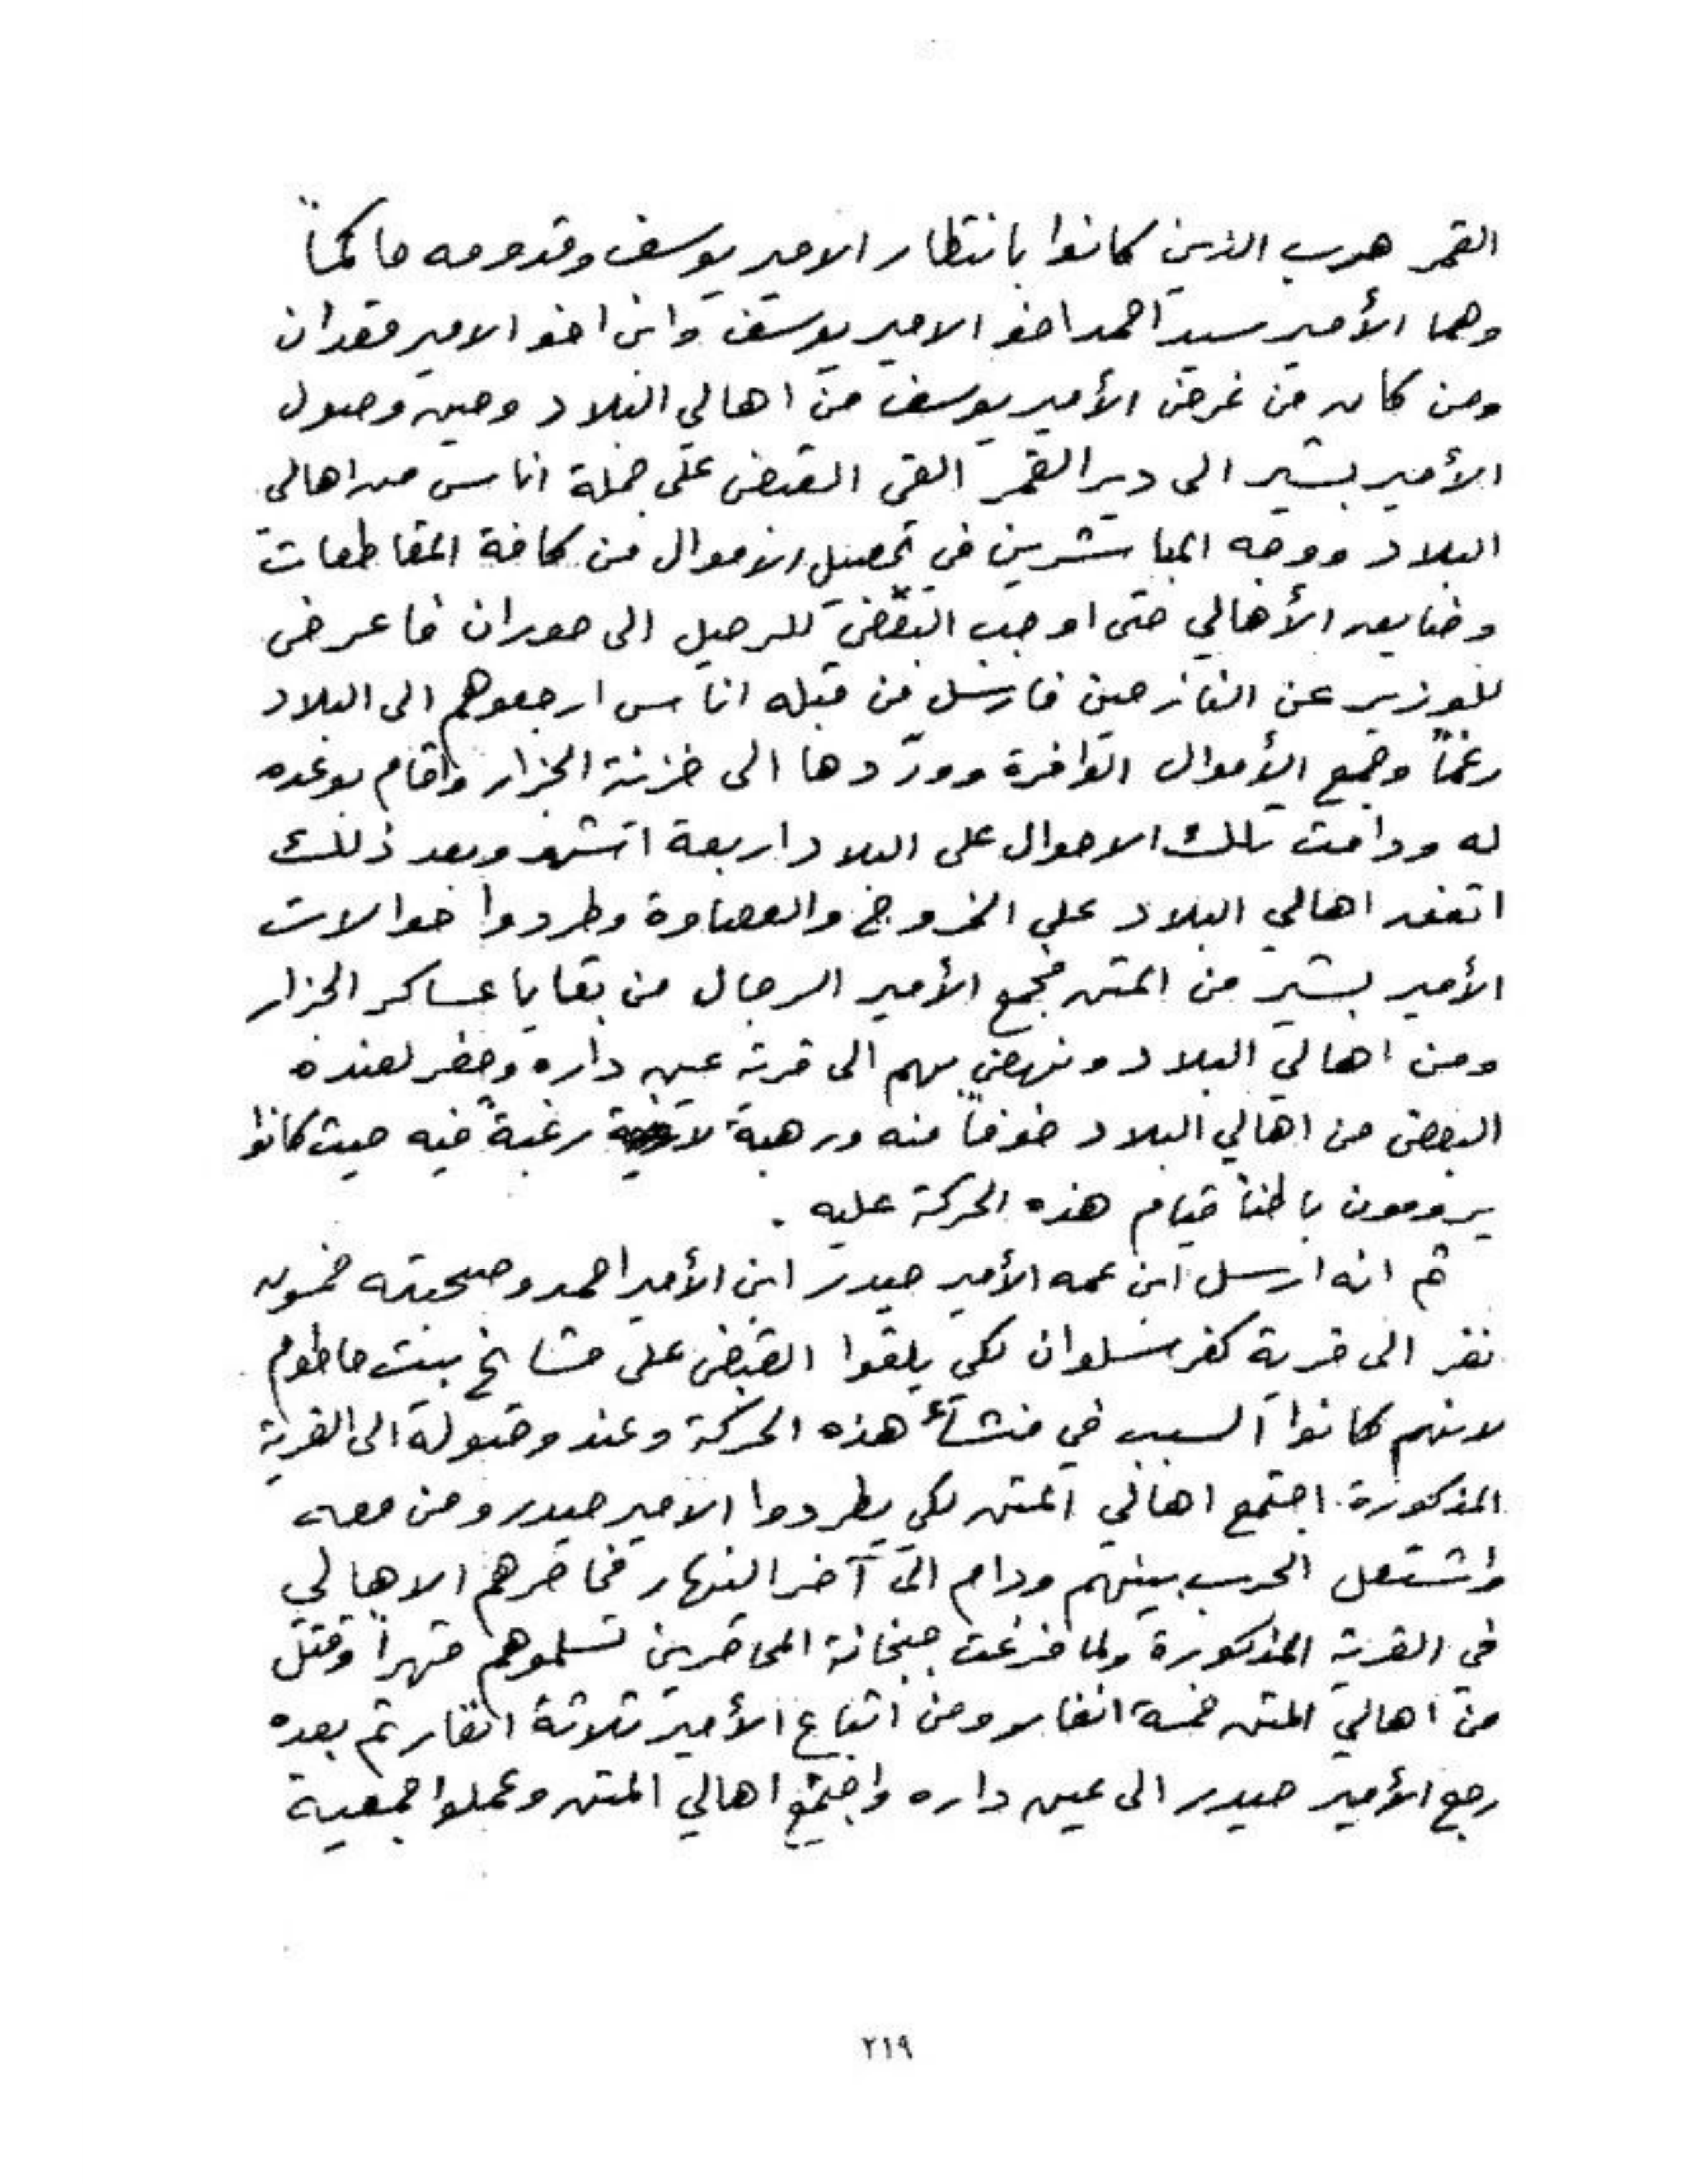 القمر هرب الذين كانوا بانتظار الامير يوسف وقدومه حاكماً
وهما الأمير سيد احمد اخو الامير يوسف وابن اخو الامير قعدان
ومن كان من غرض الأمير يوسف من اهالي البلاد وحين وصول
الأمير بشير الى دير القمر القى القبض على جملة اناس من اهالي
البلاد ووجه المباشرين في تحصيل الاموال من كافة المقاطعات
وضايق الأهالي حتى اوجب البعض للرحيل الى حوران فاعرض
للوزير عن النازحين فارسل من قبله اناس ارجعوهم الى البلاد
رغماً وجمع الأموال الوافرة وورّدها الى خزنة الجزار واقام بوعده
له ودامت تلك الاحوال على البلاد اربعة اشهر وبعد ذلك
اتفق اهالي البلاد على الخروج والعصاوة وطردوا حوالات
الأمير بشير من المتن فجمع الأمير الرجال من بقايا عساكر الجزار
ومن اهالي البلاد ونهض بهم الى قرية عين داره وحضر لعنده
البعض من اهالي البلاد خوفاً منه ورهبة لا رغبةً فيه حيث كانوا
يرومون باطناً قيام هذه الحركة عليه .
ثم انه ارسل ابن عمه الأمير حيدر ابن الأمير احمد وصحبته خمسون
نفر الى قرية كفرسلوان لكي يلقوا القبض على مشايخ بيت حاطوم
لانهم كانوا السبب في منشاء هذه الحركة وعند وصوله الى القرية
المذكورة اجتمع اهالي المتن لكي يطردوا الامير حيدر ومن معه
واشتعل الحرب بينهم ودام الى آخر النهار فحاصرهم الاهالي
في القرية المذكورة ولما فرغت جبخانة المحاصرين تسلموهم قهراً وقتل
من اهالي المتن خمسة انفار ومن اتباع الأمير ثلاثة انفار ثم بعده
رجع الأمير حيدر الى عين داره واجتمع اهالي المتن وعملوا جمعية
٢١٩